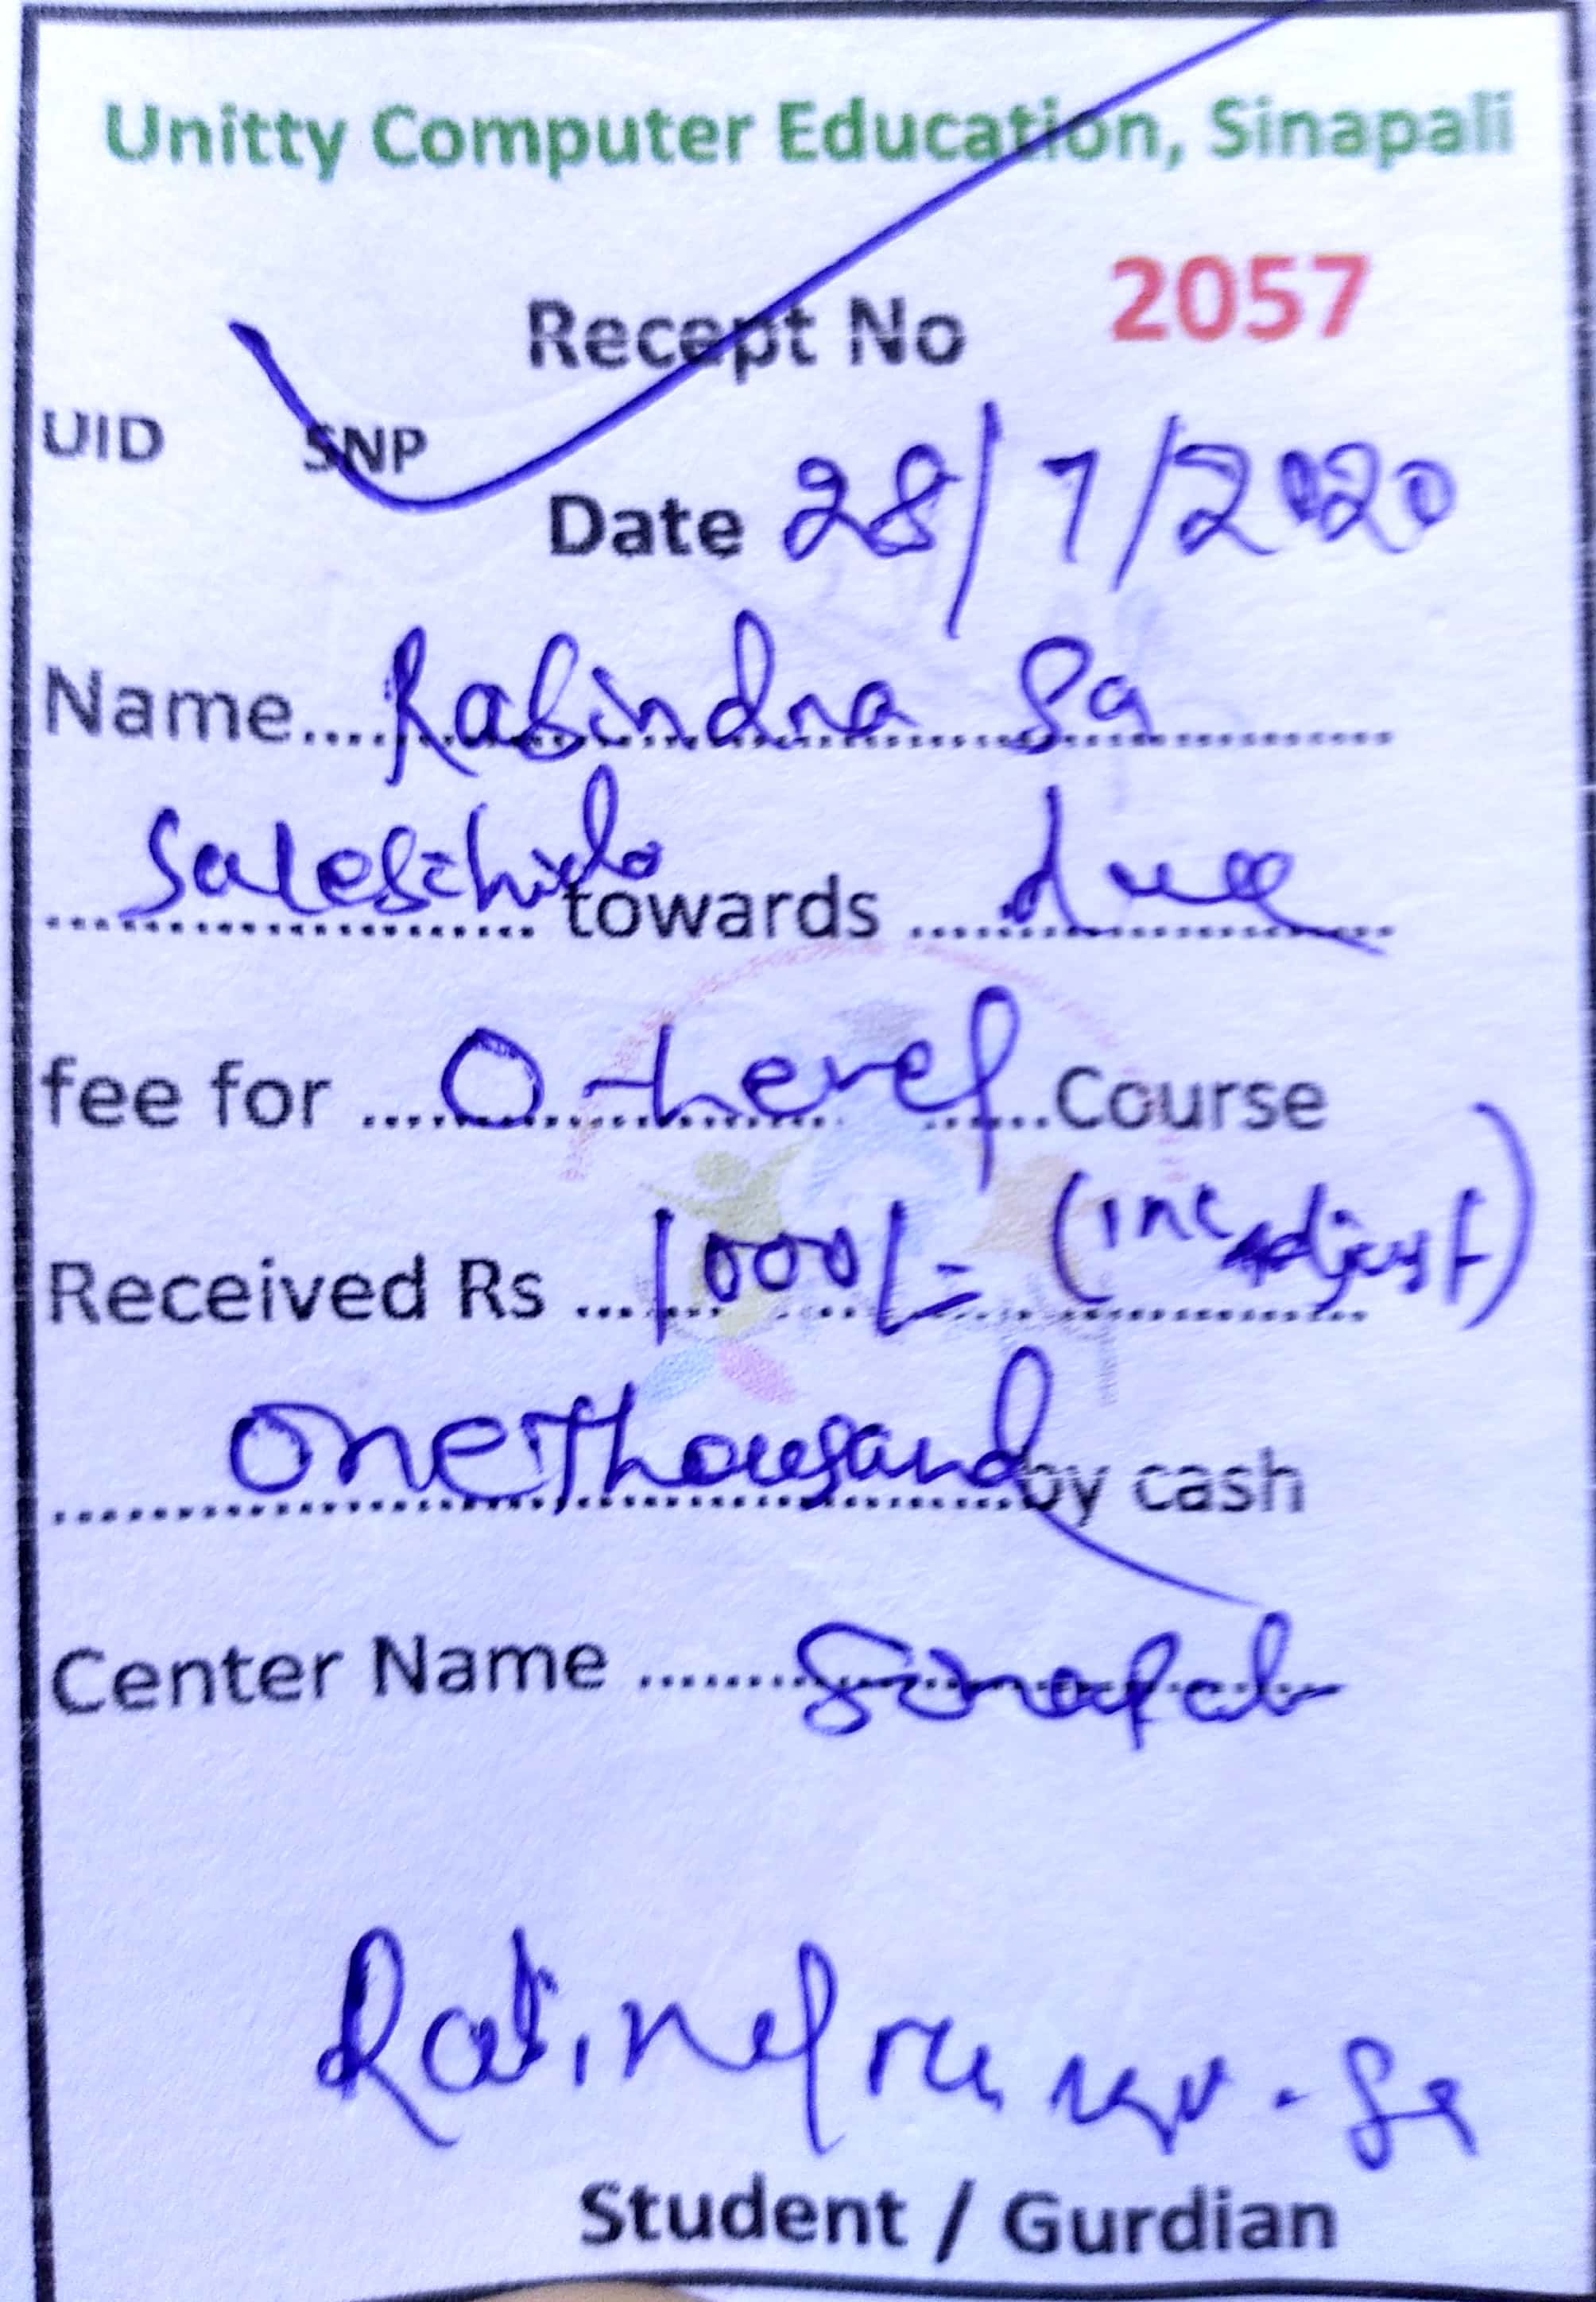 Unitty Computer Education, Sinapali
Recept No 2057
UID SNP
Date 28/7/2020
Name.... Rabindra Sa
towards due
fee for .... O-Level ....Course
Received Rs .... 1000/= (inc adjust)
One Thousand by cash
Center Name .... Sinapali
Student / Gurdian